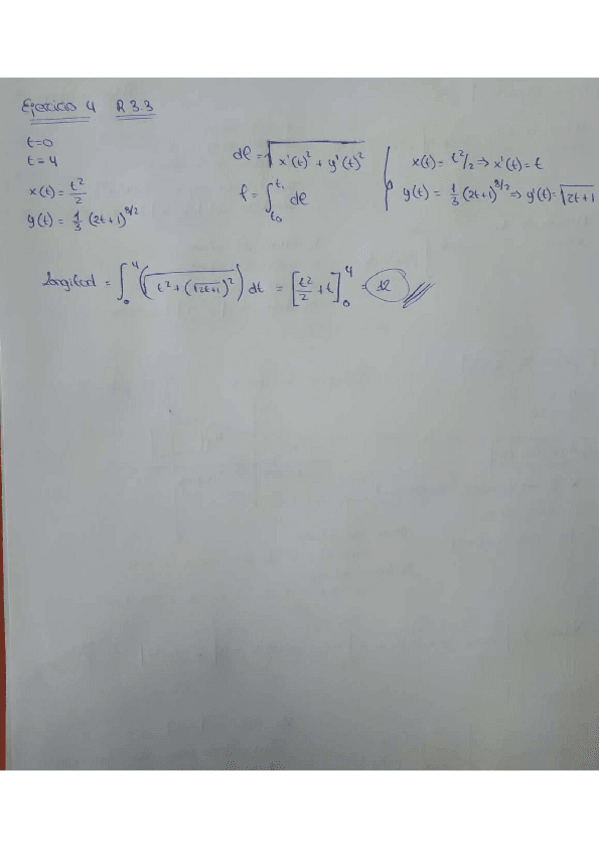 Ejercicio 4 R 3.3
t=0
t=4
x(t) = t²/2
y(t) = 1/3 (2t+1)^3/2
dl = √(x'(t)² + y'(t)²)
l = ∫_t₀^t₁ dl
x(t) = t²/2 ⇒ x'(t) = t
y(t) = 1/3 (2t+1)^3/2 ⇒ y'(t) = √(2t+1)
Longitud = ∫_0^4 (√(t²+(√(2t+1))²)) dt = [t²/2 + t]_0^4 = 12